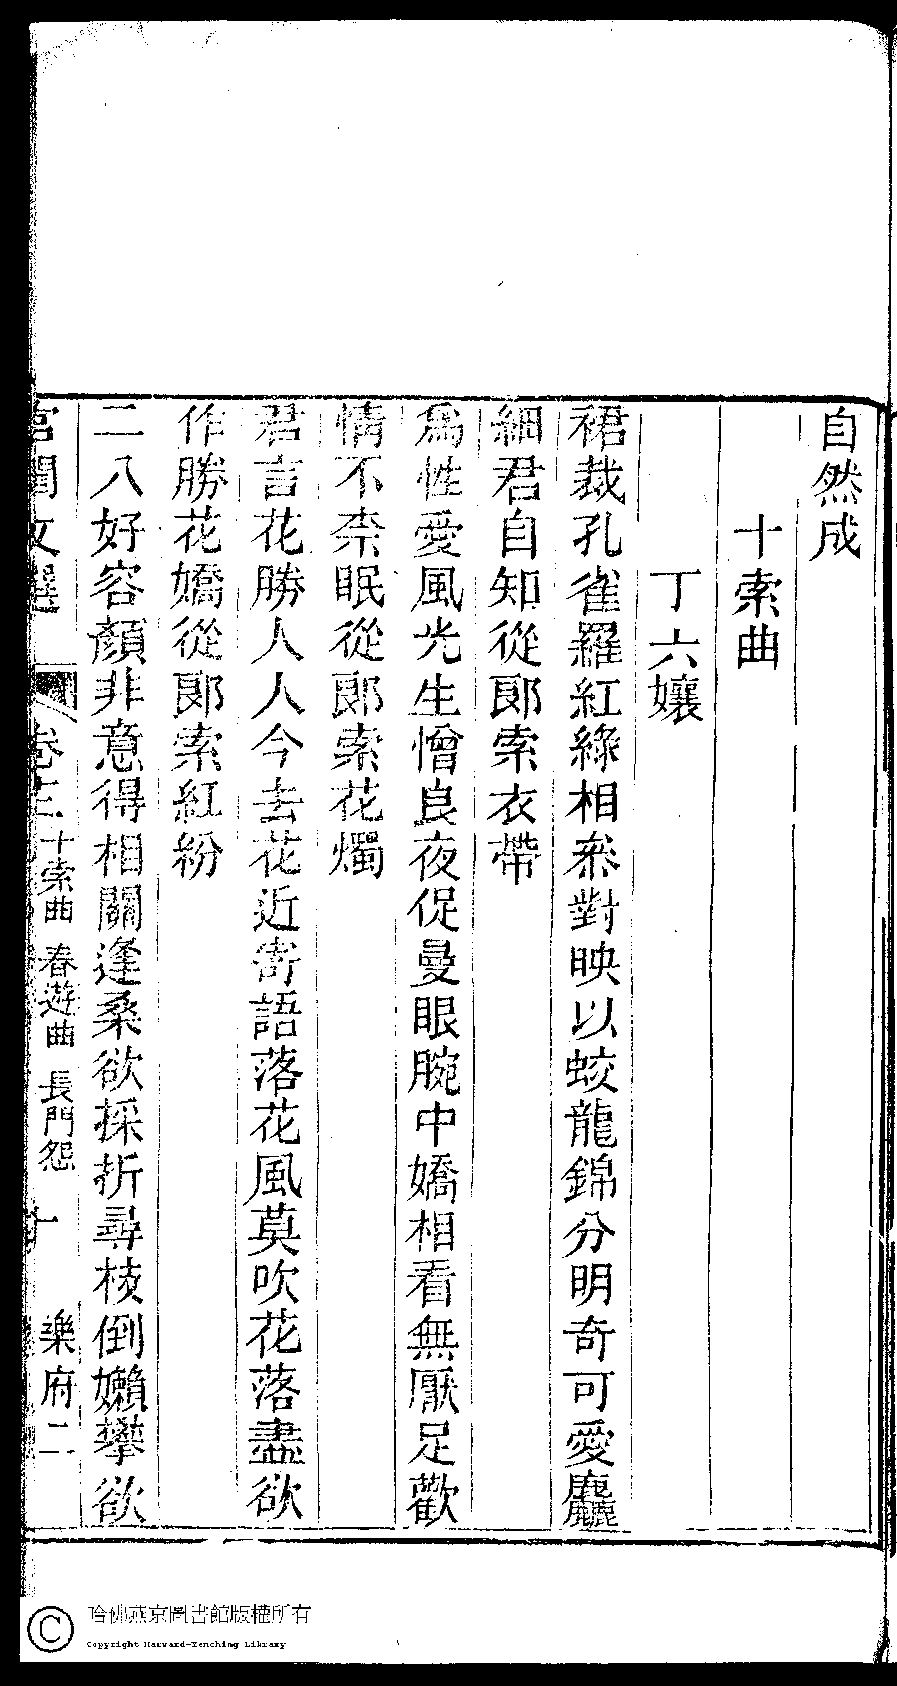 自然成
十索曲
丁六孃
裙裁孔雀羅紅綠相叅對映以蛟龍錦分明奇可愛麤
細君自知從郞索衣帶
爲性愛風光生憎良夜促曼眼腕中嬌相看無厭足歡
情不柰眠從郞索花燭
君言花勝人人今去花近寄語落花風莫吹花落盡欲
作勝花嬌從郞索紅紛
二八好容顏非意得相關逢桑欲採折尋枝倒嬾攀欲
宮閨文選 卷三 十索曲 春遊曲 長門怨 十 樂府二
哈佛燕京圖書館版權所有
Copyright Harvard-Yenching Library